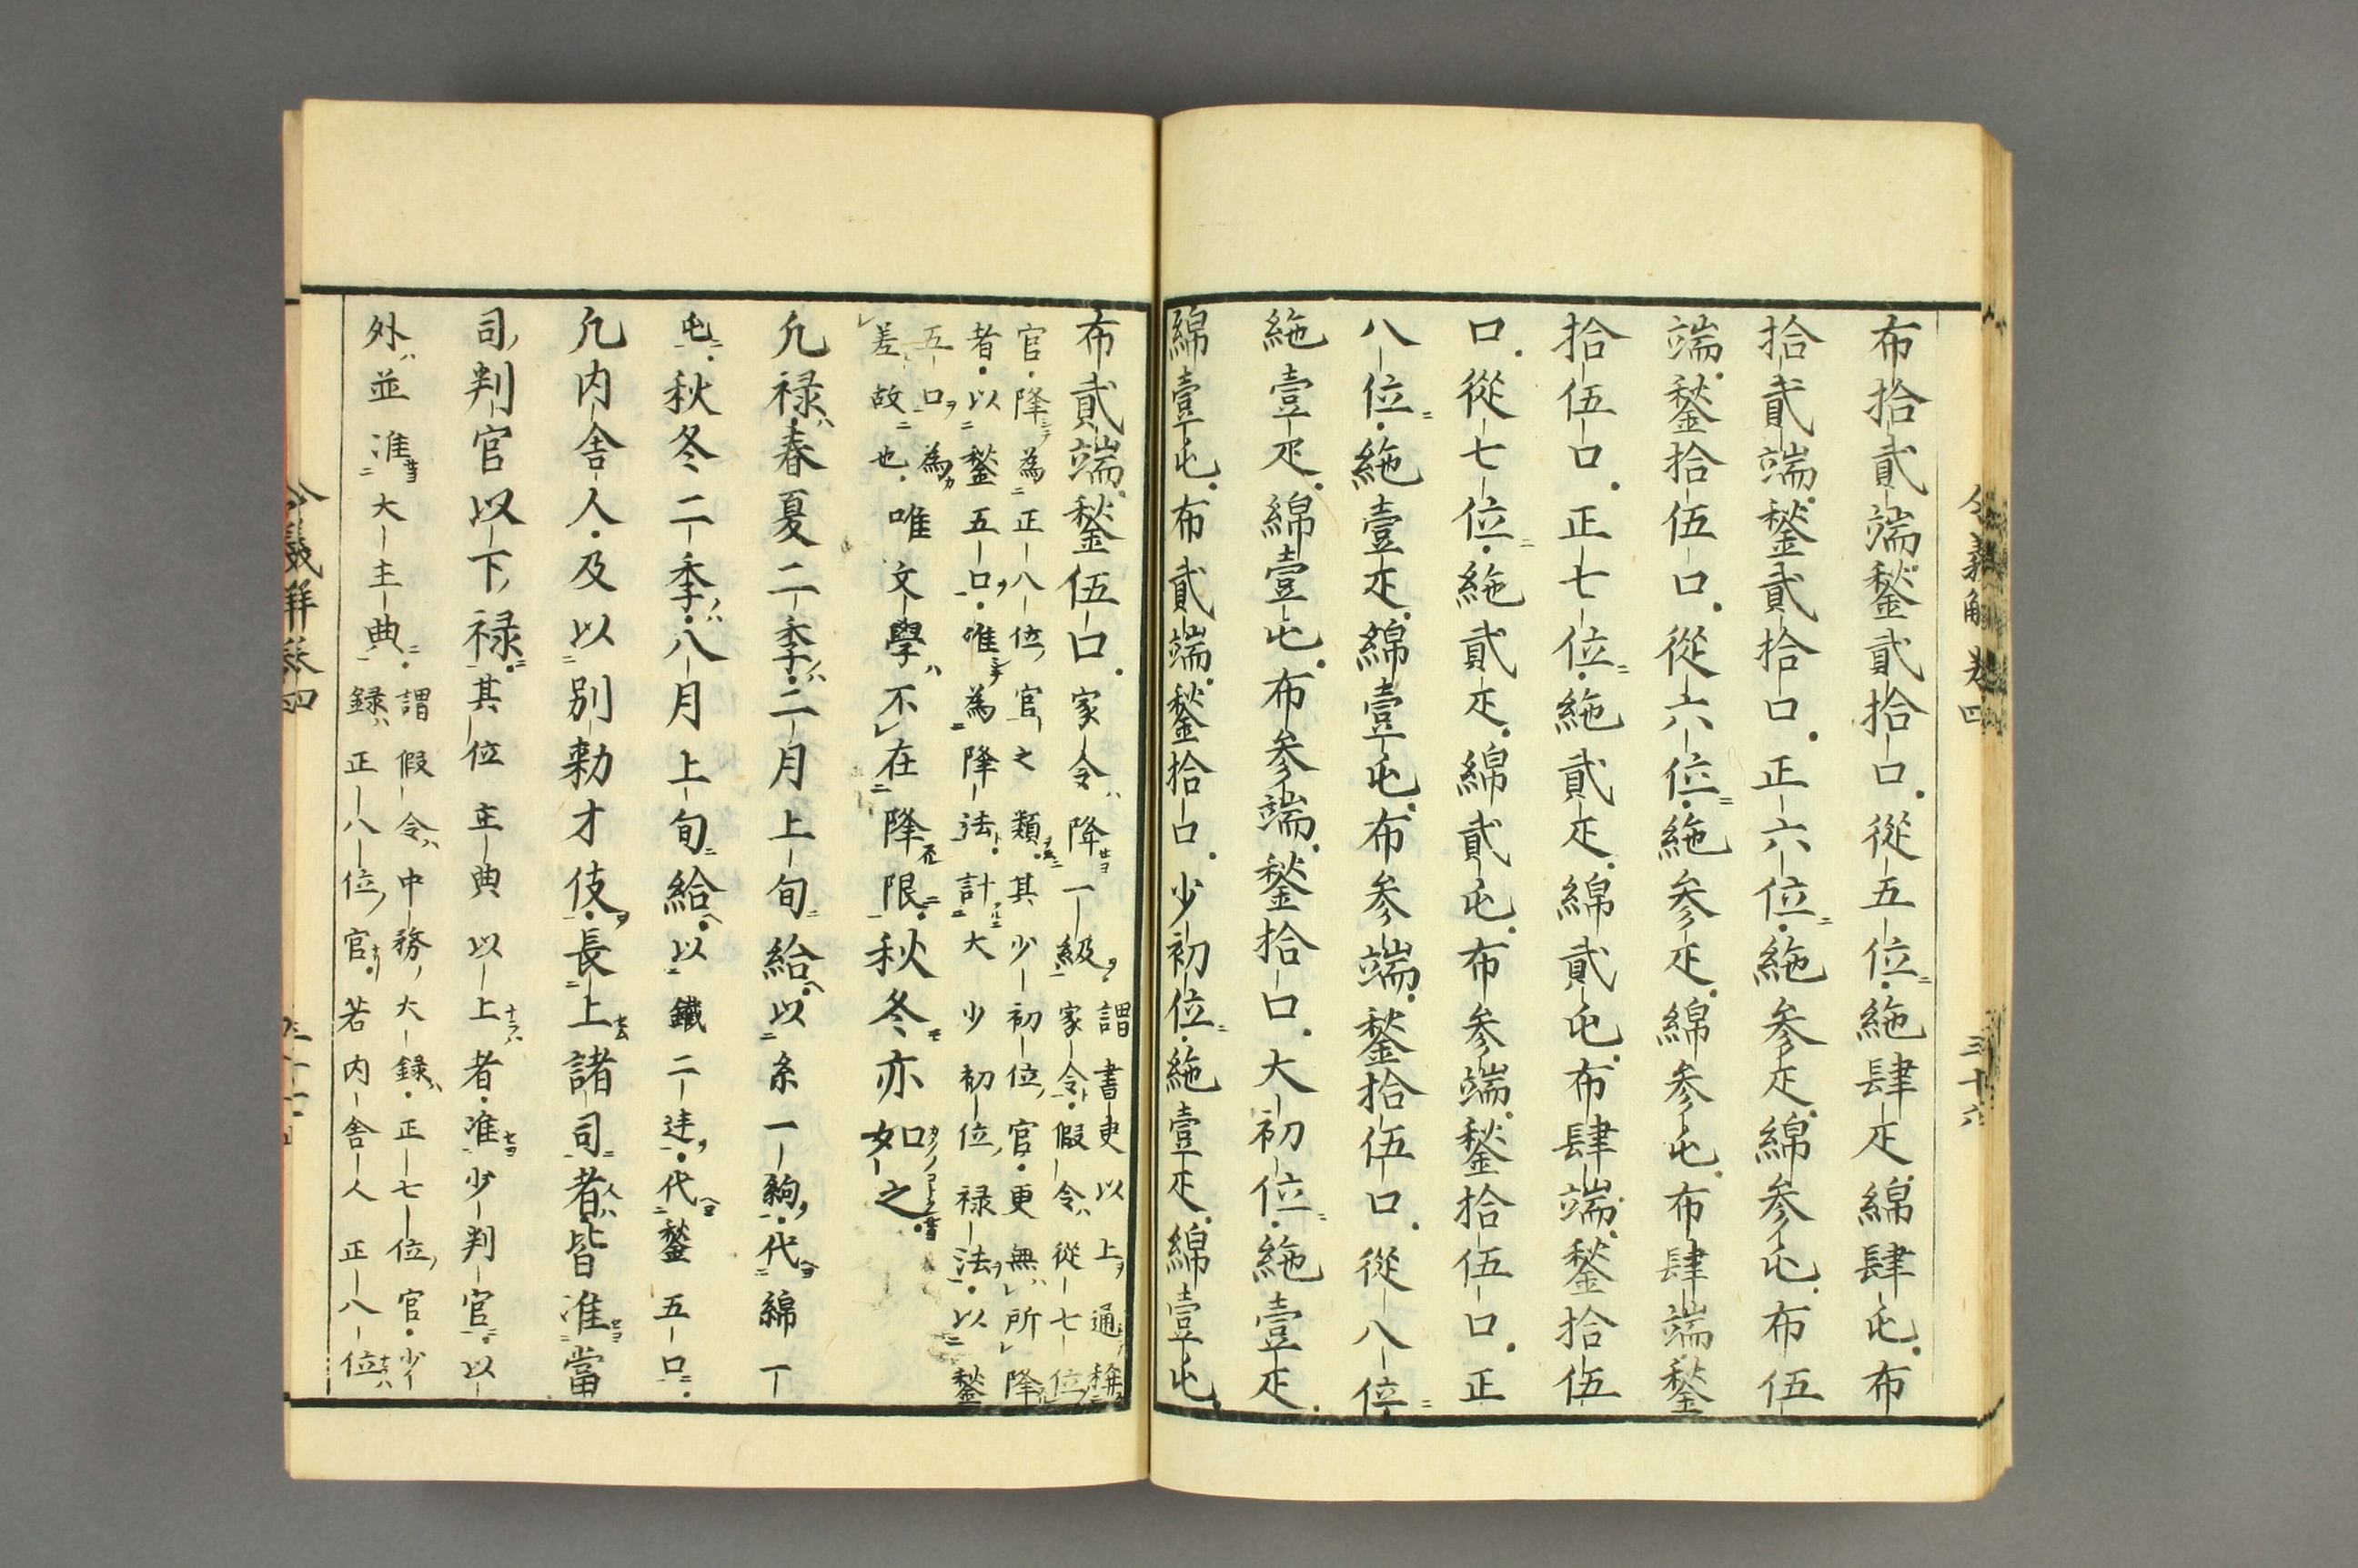 令義解卷四
三十六
布拾貳端鍫貳拾口從五位絁肆疋綿肆屯布
拾貳端鍫貳拾口正六位絁參疋綿參屯布伍
端鍫拾伍口從六位絁參疋綿參屯布肆端鍫
拾伍口正七位絁貳疋綿貳屯布肆端鍫拾伍
口從七位絁貳疋綿貳屯布參端鍫拾伍口正
八位絁壹疋綿壹屯布參端鍫拾伍口從八位
絁壹疋綿壹屯布參端鍫拾口大初位絁壹疋
綿壹屯布貳端鍫拾口少初位絁壹疋綿壹屯
布貳端鍫伍口家令降一級謂書吏以上通稱家令假令從七位
官降為正八位官之類其少初位官更無所降
者以鍫五口唯為降法計大少初位禄法以鍫
五口為差故也唯文學不在降限秋冬亦如之
凡禄春夏二季二月上旬給以糸一絇代綿一
屯秋冬二季八月上旬給以鐵二廷代鍫五口
凡内舍人及以别勅才伎長上諸司者皆准當
司判官以下禄其位主典以上者准少判官以
外並准大主典謂假令中務大録正七位官少
録正八位官若内舍人正八位
令義解卷四